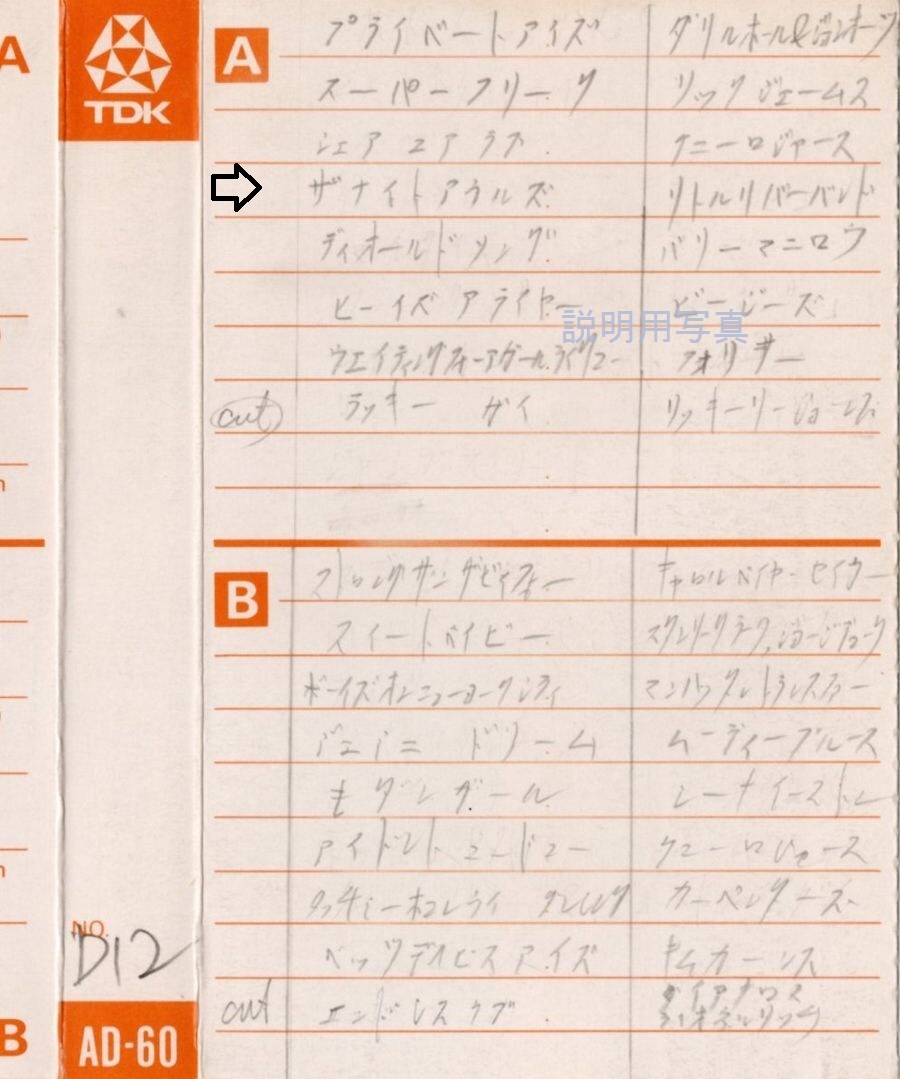 A
TDK
A
プライベートアイズ ダリルホール&ジョンオーツ
スーパーフリーク リックジェームス
シェア ユア ラブ ケニーロジャース
ザナイトアウルズ リトルリバーバンド
ディオールドソング バリーマニロウ
ヒーイズ ア ライヤー ビージーズ
説明用写真
ウエイティングフォーアガールライクユー フォリナー
cut ラッキー ガイ リッキーリージョーンズ
B
ストロング キャロルベイヤーセイガー
スイートベイビー スタンリークラーク,ジョージデューク
ボーイズオンニューヨークシティ マンハッタントランスファー
ジェミニ ドリーム ムーディーブルース
モダンガール シーナイーストン
アイドントニードユー ケニーロジャース
カーペンターズ
ベッツデイビスアイズ キムカーンス
cut エンドレスラブ ダイアナロス
ライオネルリッチ
NO.
D12
B
AD-60